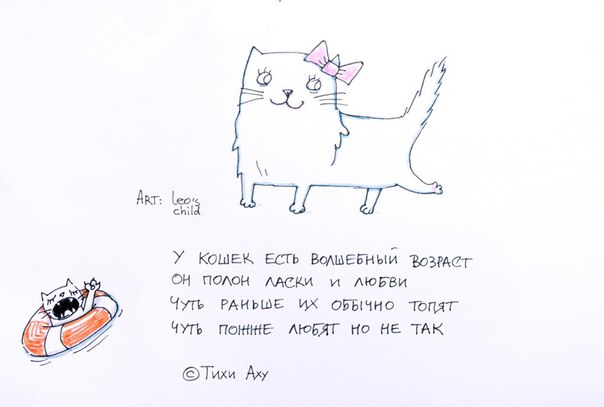 ART: Leo's
child
У КОШЕК ЕСТЬ ВОЛШЕБНЫЙ ВОЗРАСТ
ОН ПОЛОН ЛАСКИ И ЛЮБВИ
ЧУТЬ РАНЬШЕ ИХ ОБЫЧНО ТОПЯТ
ЧУТЬ ПОЖЖЕ ЛЮБЯТ НО НЕ ТАК
© Тихи Аху